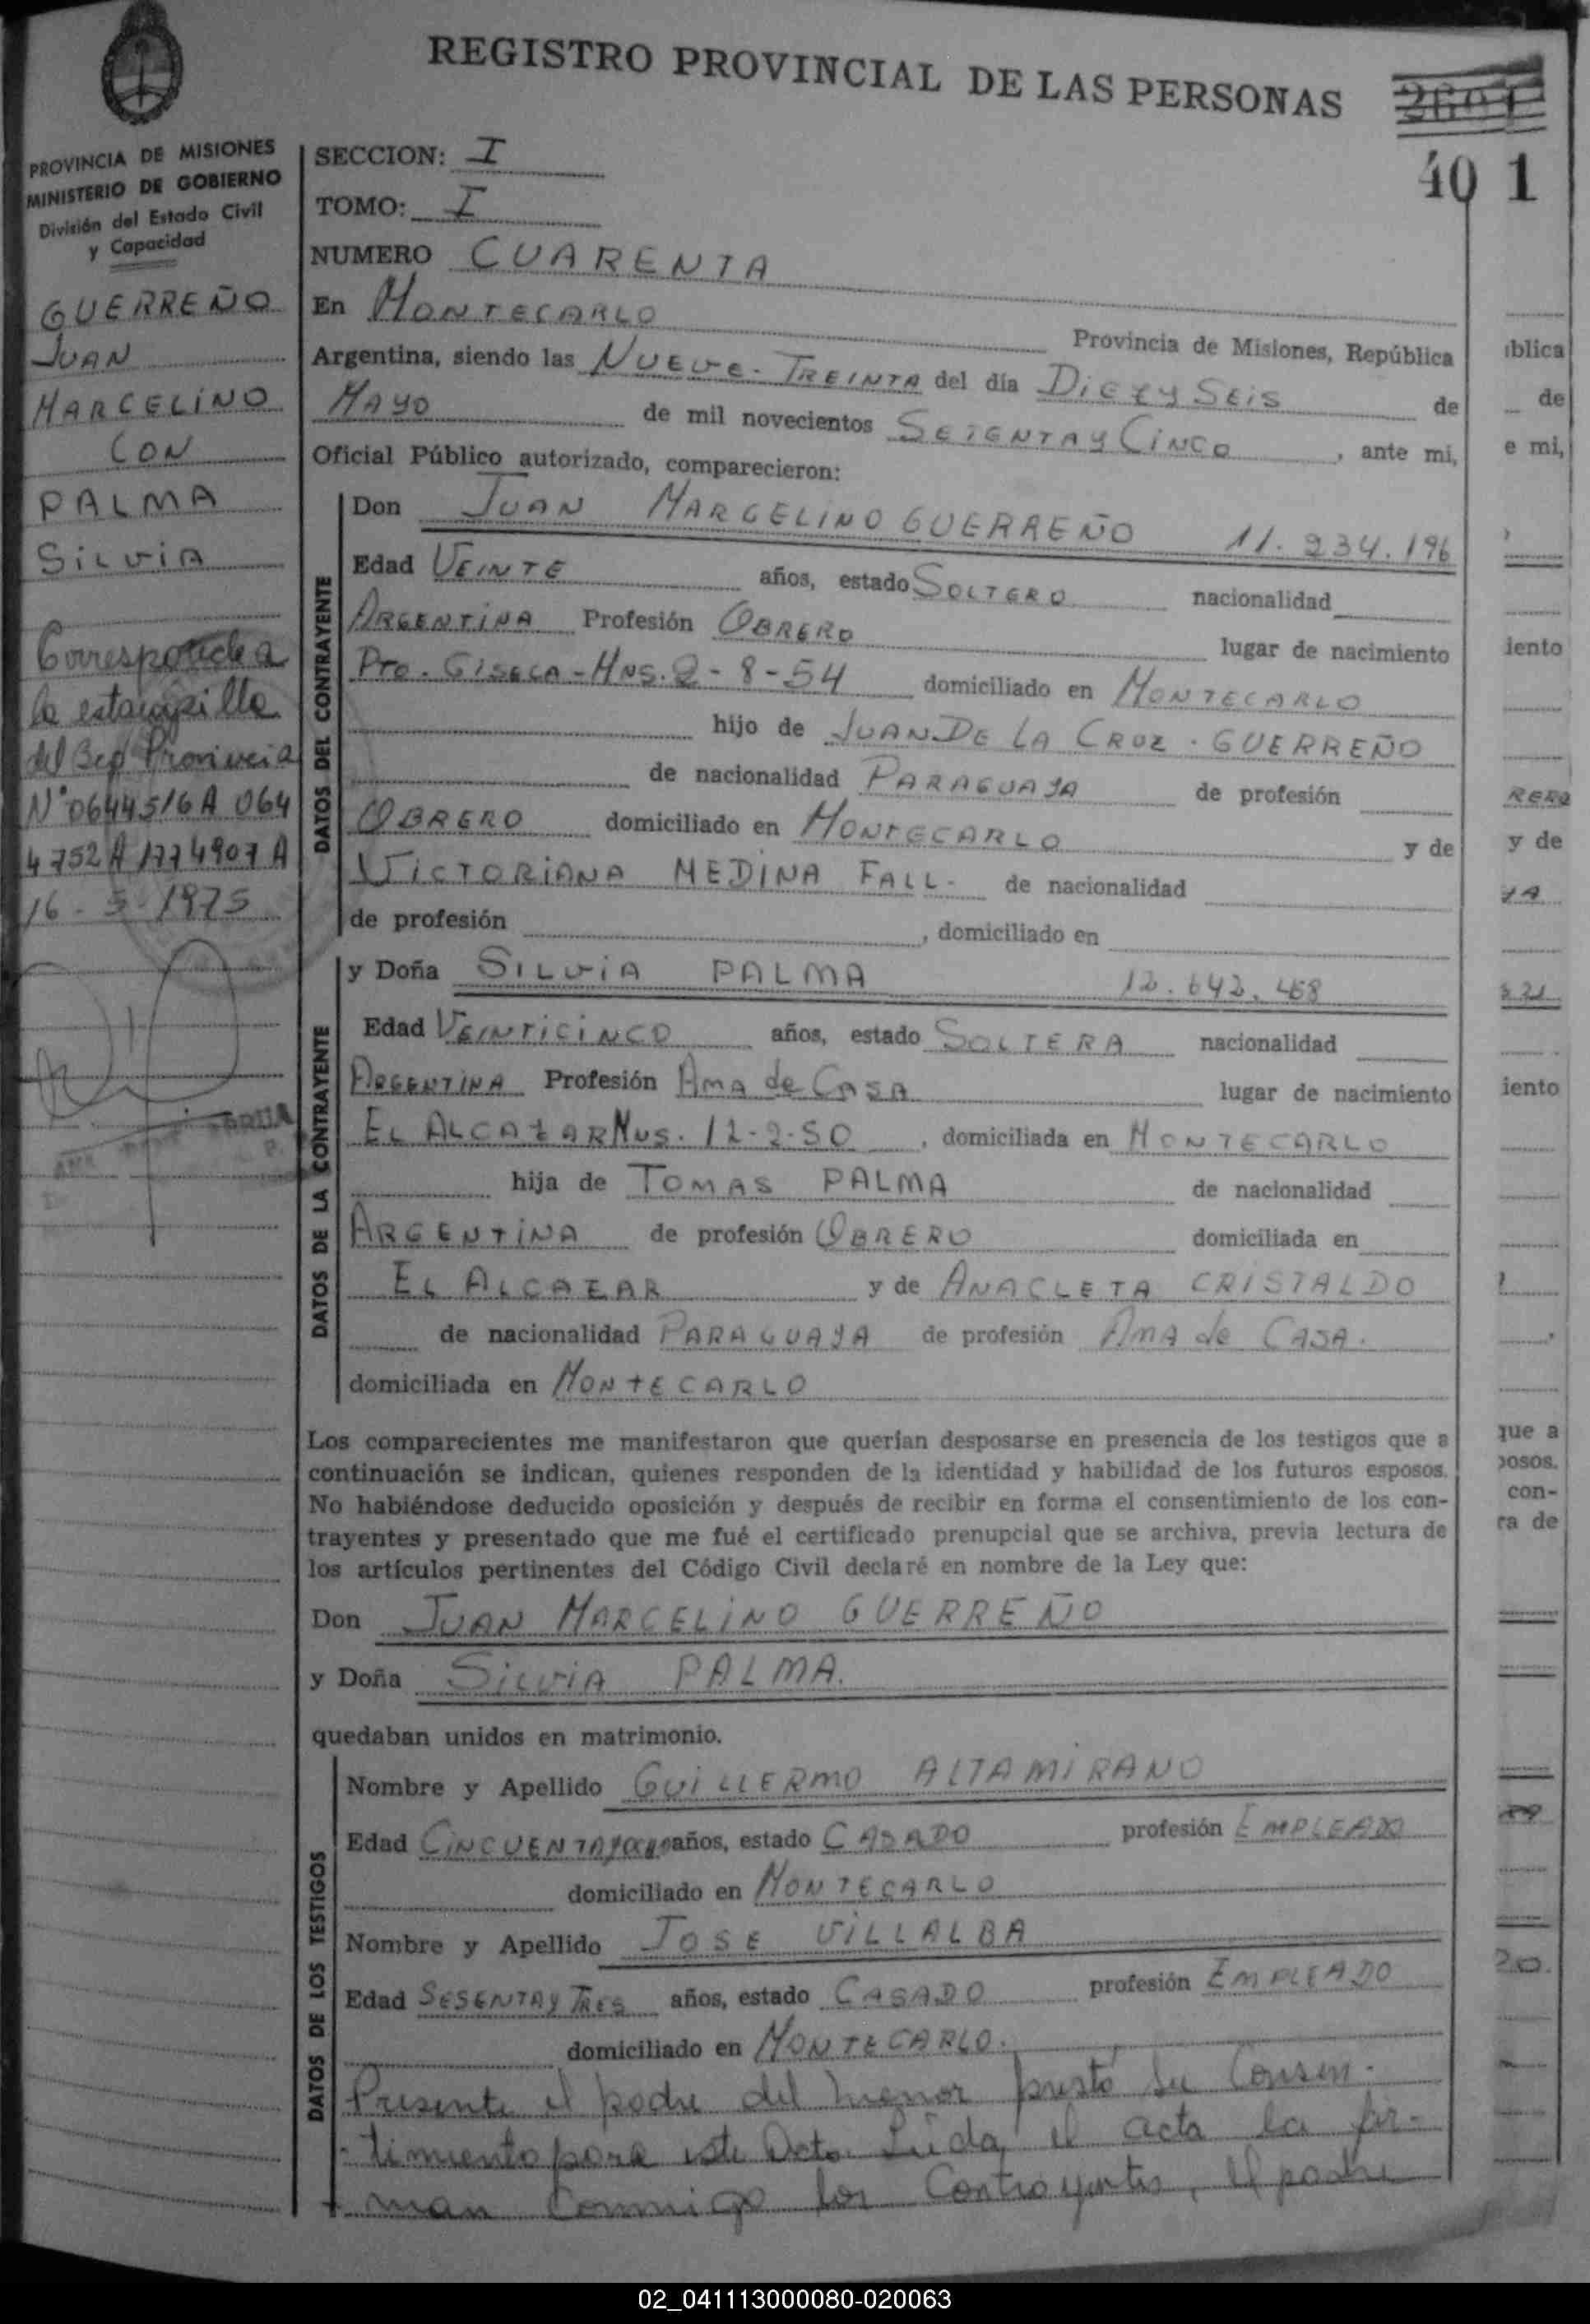 REGISTRO PROVINCIAL DE LAS PERSONAS
40 1
PROVINCIA DE MISIONES
MINISTERIO DE GOBIERNO
División del Estado Civil
y Capacidad
GUERREÑO
JUAN
MARCELINO
CON
PALMA
SILVIA
Corresponde a
la estampilla
del Sep Provincia
N° 0644516A 064
4752A 1774907A
16 - 5 - 1975
SECCION: I
TOMO: I
NUMERO CUARENTA
En MONTECARLO Provincia de Misiones, República
Argentina, siendo las NUEVE - TREINTA del día DIEZ Y SEIS de
MAYO de mil novecientos SETENTA Y CINCO, ante mi,
Oficial Público autorizado, comparecieron:
DATOS DEL CONTRAYENTE
Don JUAN MARCELINO GUERREÑO 11.234.196
Edad VEINTE años, estado SOLTERO nacionalidad
ARGENTINA Profesión OBRERO lugar de nacimiento
Pto. GISELA - MNS. 2 - 8 - 54 domiciliado en MONTECARLO
hijo de JUAN DE LA CRUZ - GUERREÑO
de nacionalidad PARAGUAYA de profesión
OBRERO domiciliado en MONTECARLO y de
VICTORIANA MEDINA FALL. de nacionalidad
de profesión , domiciliado en
DATOS DE LA CONTRAYENTE
y Doña SILVIA PALMA 12.642.468
Edad VEINTICINCO años, estado SOLTERA nacionalidad
ARGENTINA Profesión AMA de CASA lugar de nacimiento
EL ALCAZAR MNS. 12-2-50, domiciliada en MONTECARLO
hija de TOMAS PALMA de nacionalidad
ARGENTINA de profesión OBRERO domiciliada en
EL ALCAZAR y de ANACLETA CRISTALDO
de nacionalidad PARAGUAYA de profesión AMA de CASA.
domiciliada en MONTECARLO
Los comparecientes me manifestaron que querían desposarse en presencia de los testigos que a
continuación se indican, quienes responden de la identidad y habilidad de los futuros esposos.
No habiéndose deducido oposición y después de recibir en forma el consentimiento de los con-
trayentes y presentado que me fué el certificado prenupcial que se archiva, previa lectura de
los artículos pertinentes del Código Civil declaré en nombre de la Ley que:
Don JUAN MARCELINO GUERREÑO
y Doña SILVIA PALMA.
quedaban unidos en matrimonio.
DATOS DE LOS TESTIGOS
Nombre y Apellido GUILLERMO ALTAMIRANO
Edad CINCUENTA Y OCHO años, estado CASADO profesión EMPLEADO
domiciliado en MONTECARLO
Nombre y Apellido JOSE VILLALBA
Edad SESENTA Y TRES años, estado CASADO profesión EMPLEADO
domiciliado en MONTECARLO.
Presente el padre del menor prestó su Consen-
timiento para este Acto. Leída el acta la fir-
man conmigo los Contrayentes, el padre
iblica
de
e mi,
iento
RERO
y de
iento
que a
posos.
con-
ra de
02_041113000080-020063